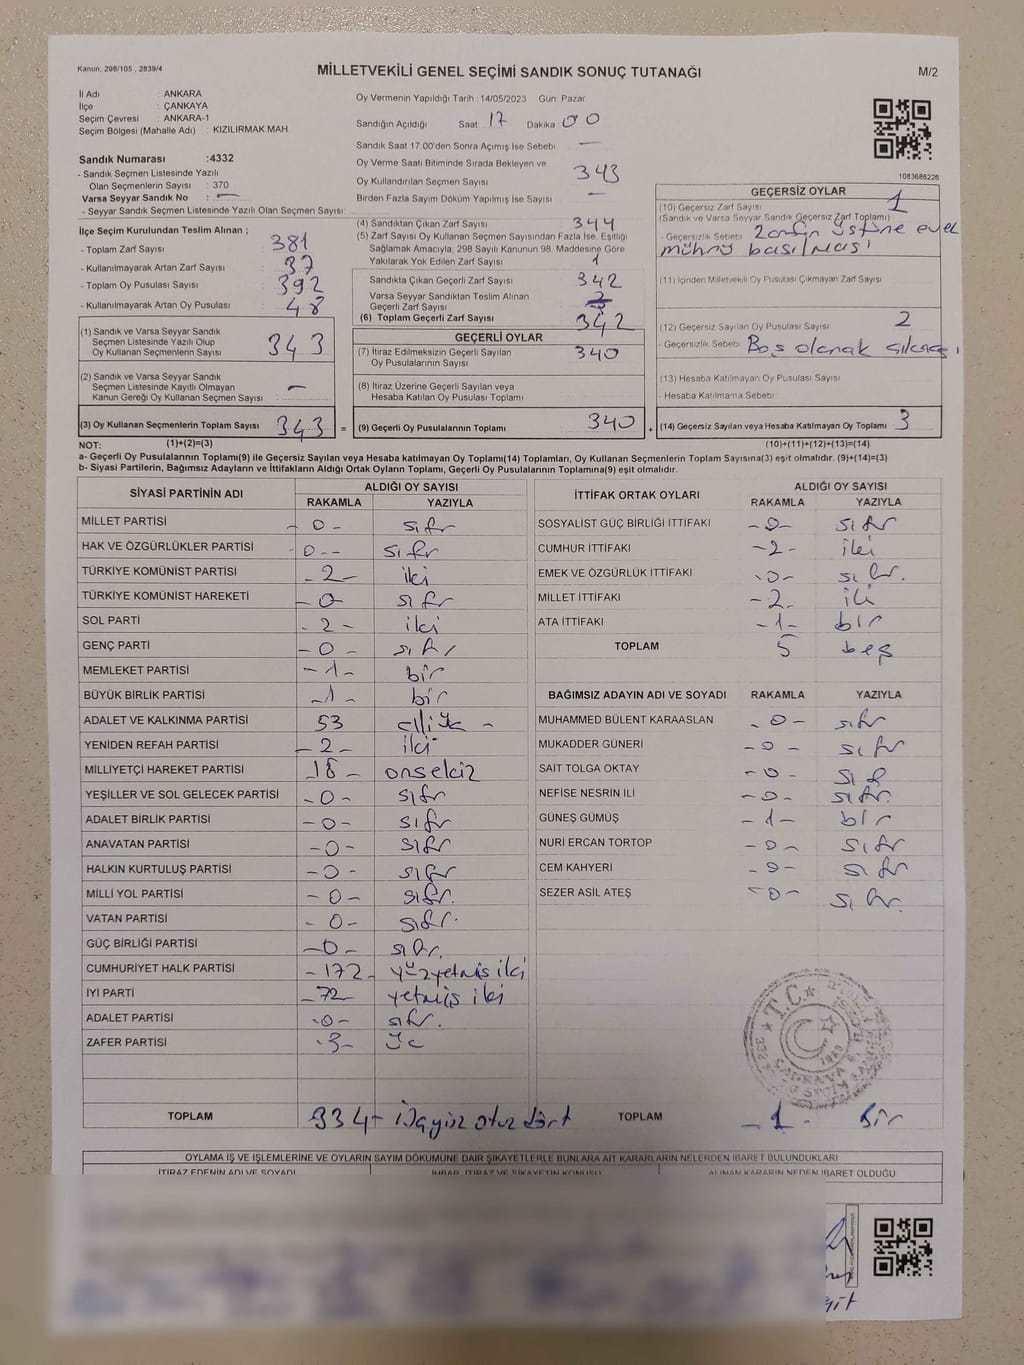 Kanun: 298/105 , 2839/4
MİLLETVEKİLİ GENEL SEÇİMİ SANDIK SONUÇ TUTANAĞI
M/2
İl Adı : ANKARA
İlçe : ÇANKAYA
Seçim Çevresi : ANKARA-1
Seçim Bölgesi (Mahalle Adı) : KIZILIRMAK MAH.
Sandık Numarası :4332
- Sandık Seçmen Listesinde Yazılı
Olan Seçmenlerin Sayısı : 370
Varsa Seyyar Sandık No : —
- Seyyar Sandık Seçmen Listesinde Yazılı Olan Seçmen Sayısı:
İlçe Seçim Kurulundan Teslim Alınan ;
- Toplam Zarf Sayısı : 381
- Kullanılmayarak Artan Zarf Sayısı : 37
- Toplam Oy Pusulası Sayısı : 392
- Kullanılmayarak Artan Oy Pusulası : 48
(1) Sandık ve Varsa Seyyar Sandık
Seçmen Listesinde Yazılı Olup
Oy Kullanan Seçmenlerin Sayısı : 343
(2) Sandık ve Varsa Seyyar Sandık
Seçmen Listesinde Kayıtlı Olmayan
Kanun Gereği Oy Kullanan Seçmen Sayısı : —
(3) Oy Kullanan Seçmenlerin Toplam Sayısı : 343 =
Oy Vermenin Yapıldığı Tarih : 14/05/2023 Gün: Pazar
Sandığın Açıldığı Saat: 17 Dakika: 00
Sandık Saat 17.00'den Sonra Açılmış İse Sebebi : —
Oy Verme Saati Bitiminde Sırada Bekleyen ve
Oy Kullandırılan Seçmen Sayısı : 343
Birden Fazla Sayım Döküm Yapılmış İse Sayısı : —
(4) Sandıktan Çıkan Zarf Sayısı : 344
(5) Zarf Sayısı Oy Kullanan Seçmen Sayısından Fazla İse, Eşitliği
Sağlamak Amacıyla, 298 Sayılı Kanunun 98. Maddesine Göre
Yakılarak Yok Edilen Zarf Sayısı : 1
Sandıkta Çıkan Geçerli Zarf Sayısı : 342
Varsa Seyyar Sandıktan Teslim Alınan
Geçerli Zarf Sayısı
(6) Toplam Geçerli Zarf Sayısı : 342
GEÇERLİ OYLAR
(7) İtiraz Edilmeksizin Geçerli Sayılan
Oy Pusulalarının Sayısı : 340
(8) İtiraz Üzerine Geçerli Sayılan veya
Hesaba Katılan Oy Pusulası Toplamı :
(9) Geçerli Oy Pusulalarının Toplamı : 340 +
1083686226
GEÇERSİZ OYLAR
(10) Geçersiz Zarf Sayısı : 1
(Sandık ve Varsa Seyyar Sandık Geçersiz Zarf Toplamı)
- Geçersizlik Sebebi : Zarfın üstüne evet
mührü basılması
(11) İçinden Milletvekili Oy Pusulası Çıkmayan Zarf Sayısı :
(12) Geçersiz Sayılan Oy Pusulası Sayısı : 2
- Geçersizlik Sebebi : Boş olarak çıkması
(13) Hesaba Katılmayan Oy Pusulası Sayısı :
- Hesaba Katılmama Sebebi :
(14) Geçersiz Sayılan veya Hesaba Katılmayan Oy Pusulası Toplamı : 3
NOT: (1)+(2)=(3) (10)+(11)+(12)+(13)=(14)
a- Geçerli Oy Pusulalarının Toplamı(9) ile Geçersiz Sayılan veya Hesaba katılmayan Oy Pusulası Toplamı(14) Toplamları, Oy Kullanan Seçmenlerin Toplam Sayısına(3) eşit olmalıdır. (9)+(14)=(3)
b- Siyasi Partilerin, Bağımsız Adayların ve İttifakların Aldığı Ortak Oyların Toplamı, Geçerli Oy Pusulalarının Toplamına(9) eşit olmalıdır.
SİYASİ PARTİNİN ADI ALDIĞI OY SAYISI
RAKAMLA YAZIYLA
MİLLET PARTİSİ -0- sıfır
HAK VE ÖZGÜRLÜKLER PARTİSİ -0- sıfır
TÜRKİYE KOMÜNİST PARTİSİ -2- iki
TÜRKİYE KOMÜNİST HAREKETİ -0- sıfır
SOL PARTİ -2- iki
GENÇ PARTİ -0- sıfır
MEMLEKET PARTİSİ -1- bir
BÜYÜK BİRLİK PARTİSİ -1- bir
ADALET VE KALKINMA PARTİSİ 53 elliüç -
YENİDEN REFAH PARTİSİ -2- iki
MİLLİYETÇİ HAREKET PARTİSİ -18- onsekiz
YEŞİLLER VE SOL GELECEK PARTİSİ -0- sıfır
ADALET BİRLİK PARTİSİ -0- sıfır
ANAVATAN PARTİSİ -0- sıfır
HALKIN KURTULUŞ PARTİSİ -0- sıfır
MİLLİ YOL PARTİSİ -0- sıfır.
VATAN PARTİSİ -0- sıfır.
GÜÇ BİRLİĞİ PARTİSİ -0- sıfır.
CUMHURİYET HALK PARTİSİ -172- yüzyetmiş iki
İYİ PARTİ -72- yetmiş iki
ADALET PARTİSİ -0- sıfır.
ZAFER PARTİSİ -3- üç
TOPLAM 334- üçyüz otuz dört
İTTİFAK ORTAK OYLARI ALDIĞI OY SAYISI
RAKAMLA YAZIYLA
SOSYALİST GÜÇ BİRLİĞİ İTTİFAKI -0- sıfır
CUMHUR İTTİFAKI -2- iki
EMEK VE ÖZGÜRLÜK İTTİFAKI -0- sıfır.
MİLLET İTTİFAKI -2- iki
ATA İTTİFAKI -1- bir
TOPLAM 5 beş
BAĞIMSIZ ADAYIN ADI VE SOYADI RAKAMLA YAZIYLA
MUHAMMED BÜLENT KARAASLAN -0- sıfır
MUKADDER GÜNERİ -0- sıfır
SAİT TOLGA OKTAY -0- sıfır
NEFİSE NESRİN İLİ -0- sıfır.
GÜNEŞ GÜMÜŞ -1- bir
NURİ ERCAN TORTOP -0- sıfır
CEM KAHYERİ -0- sıfır
SEZER ASİL ATEŞ -0- sıfır.
T.C.
TOPLAM -1- bir
OYLAMA İŞ VE İŞLEMLERİNE VE OYLARIN SAYIM DÖKÜMÜNE DAİR ŞİKAYETLERLE BUNLARA AİT KARARLARIN NELERDEN İBARET BULUNDUKLARI
İTİRAZ EDENİN ADI VE SOYADI İHBAR, İTİRAZ VE ŞİKAYETİN KONUSU ALINAN KARARIN NEDEN İBARET OLDUĞU